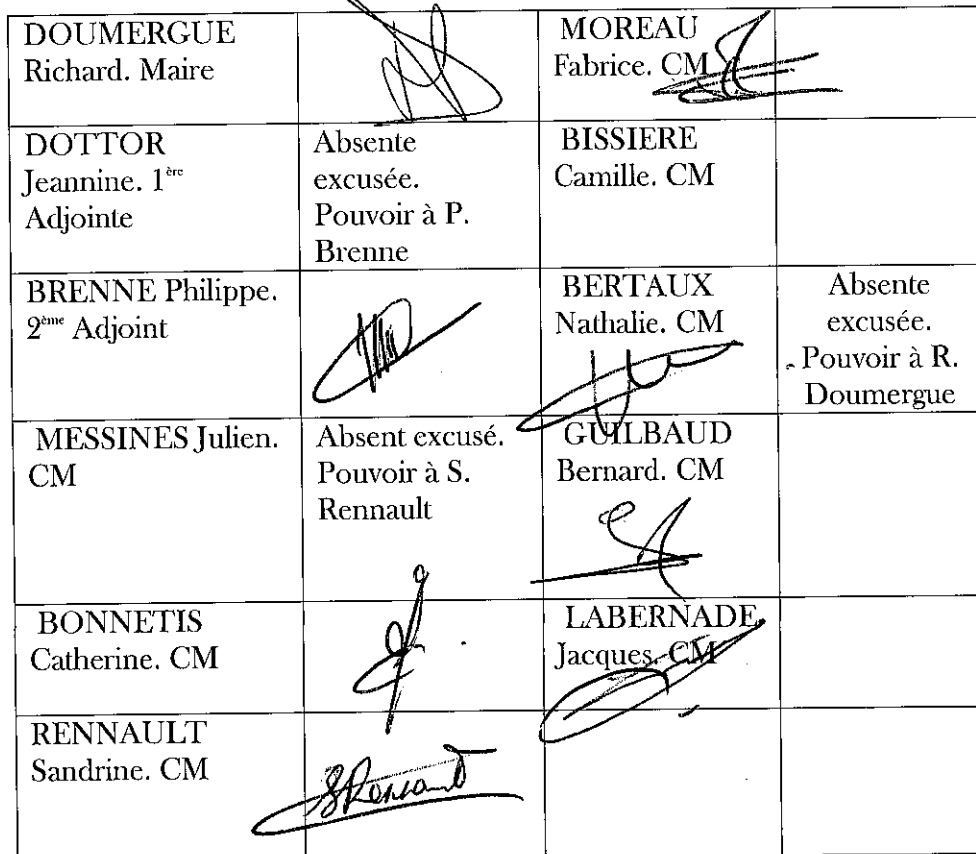 DOUMERGUE
Richard. Maire
MOREAU
Fabrice. CM
DOTTOR
Jeannine. 1ère
Adjointe
Absente
excusée.
Pouvoir à P.
Brenne
BISSIERE
Camille. CM
BRENNE Philippe.
2ème Adjoint
BERTAUX
Nathalie. CM
Absente
excusée.
Pouvoir à R.
Doumergue
MESSINES Julien.
CM
Absent excusé.
Pouvoir à S.
Rennault
GUILBAUD
Bernard. CM
BONNETIS
Catherine. CM
LABERNADE
Jacques. CM
RENNAULT
Sandrine. CM